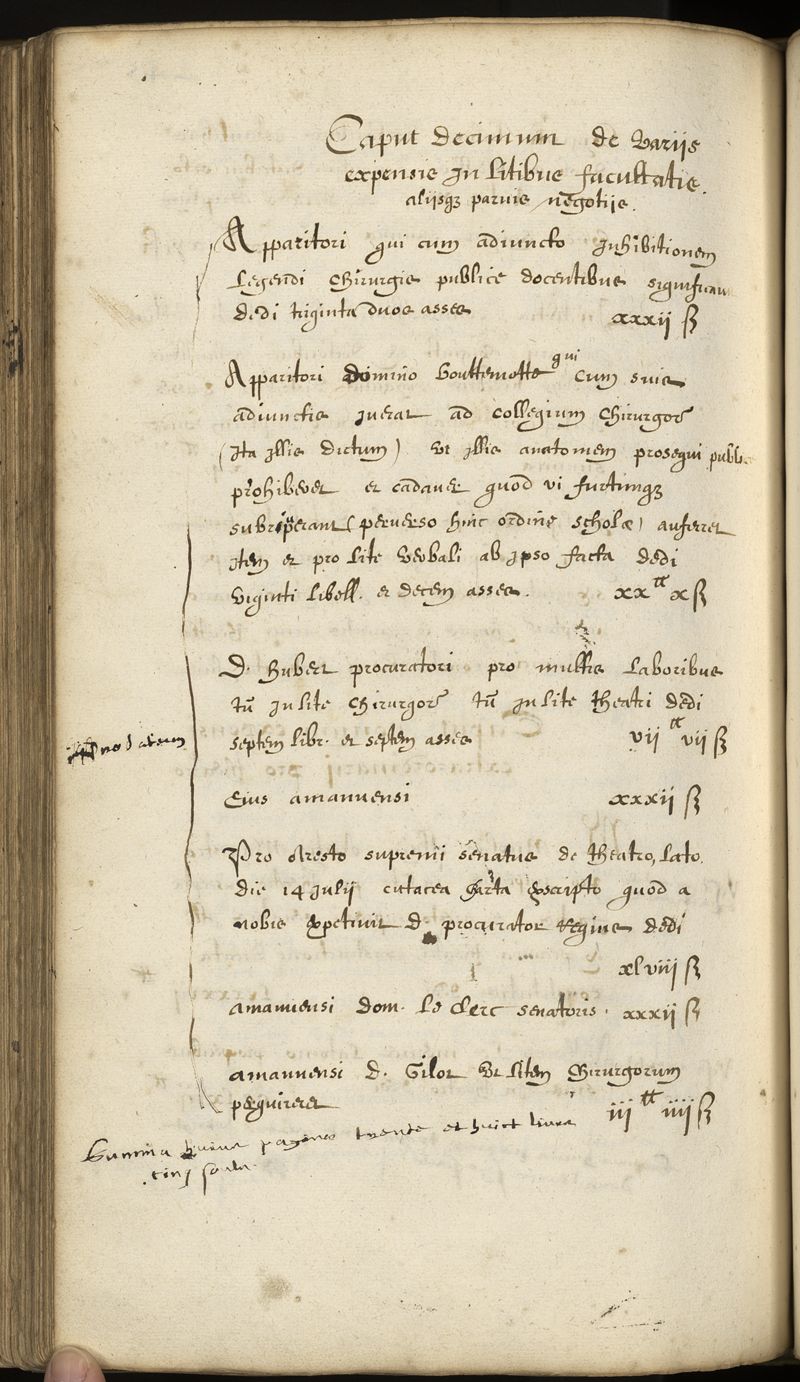 Caput decimum de varijs
expensis in litibus facultatis
alijsqz parvis negotijs.
Apparitori qui cum adiuncto inhibitionem
legendi Chirurgis publice docentibus
dedi triginta duos asses xxxii ß
Apparitori domino Bouttemotte qui cum suis
adiunctis iverat ad collegium Chirurgor
(ita illis dictum) ut illis anatomem prosequi
prohiberet et cadaver quod vi furtimqz
subripuerant (perverso hinc ordine scholæ) auferret
item et pro lite verbali ab ipso facta dedi
viginti libell. et decem asses. xx tt x ß
D. Hubert procuratori pro multis laboribus
tū in lite Chirurgor tū in lite theatri dedi
septem libr. et septem asses vii tt vii ß
Eius amanuensi xxxii ß
Pro Aresto supremi senatus de theatro, lato
die 14 Julij carta exscripto quod a
nobis expetivit D. procurator regius dedi
xlviii ß
amanuensi dom. le Clerc senatoris. xxxii ß
amanuensi D. Gilot ut litem Chirurgorum
perquireret iii tt iiii ß
Summa huius paginæ trente et huict livres
cinq